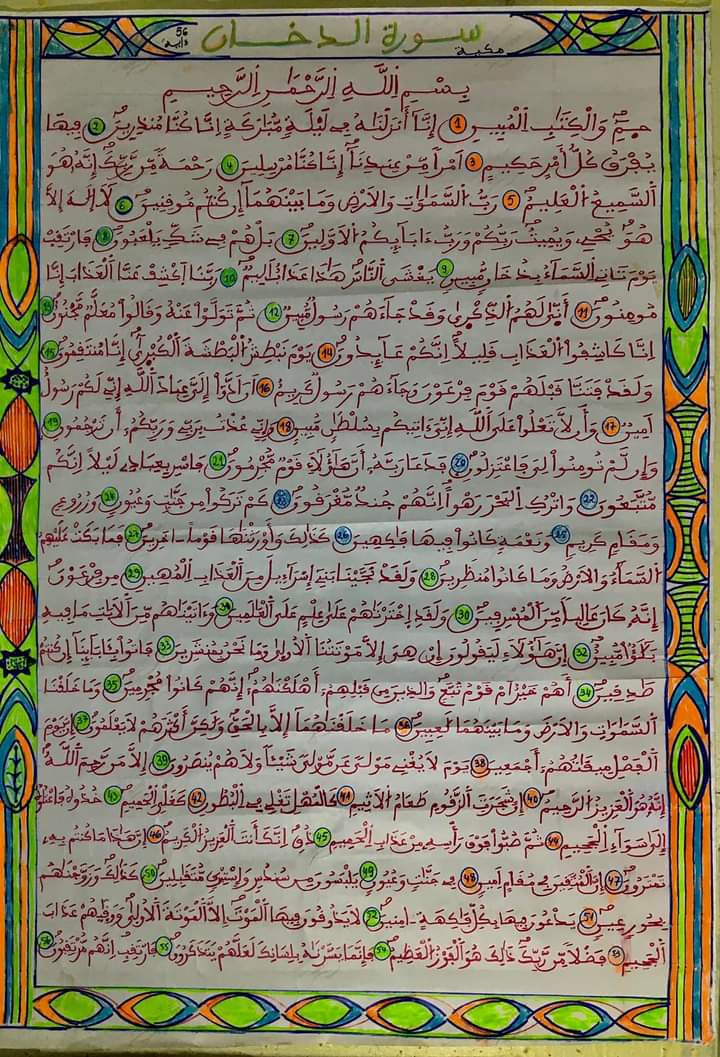 سورة الدخان
مكية
56
ءاية
بسم الله الرحمن الرحيم
حم والكتاب المبين 1 إنا أنزلناه في ليلة مباركة إنا كنا منذرين 2 فيها
يفرق كل أمر حكيم 3 أمرا من عندنا إنا كنا مرسلين 4 رحمة من ربك إنه هو
السميع العليم 5 رب السموات والارض وما بينهما إن كنتم موقنين 6 لا إله إلا
هو يحي ويميت ربكم ورب ءابائكم الاولين 7 بل هم في شك يلعبون 8 فارتقب
يوم تاتي السماء بدخان مبين 9 يغشى الناس هذا عذاب اليم 10 ربنا اكشف عنا العذاب إنا
مومنون 11 أنى لهم الذكرى وقد جاءهم رسول مبين 12 ثم تولوا عنه وقالوا معلم مجنون 13
إنا كاشفوا العذاب قليلا إنكم عائدون 14 يوم نبطش البطشة الكبرى إنا منتقمون 15
ولقد فتنا قبلهم قوم فرعون وجاءهم رسول كريم 16 ان ادوا إلي عباد الله إني لكم رسول
امين 17 وأن لا تعلوا على الله إني ءاتيكم بسلطن مبين 18 وإني عذت بربي وربكم أن ترجمون 19
وإن لم تومنوا لي فاعتزلون 20 فدعا ربه أن هؤلاء قوم مجرمون 21 فاسر بعبادي ليلا انكم
متبعون 22 واترك البحر رهوا انهم جند مغرقون 23 كم تركوا من جنات وعيون 24 وزروع
ومقام كريم 25 ونعمة كانوا فيها فاكهين 26 كذلك وأورثناها قوما اخرين 27 فما بكت عليهم
السماء والارض وما كانوا منظرين 28 ولقد نجينا بني إسرائيل من العذاب المهين 29 من فرعون
إنه كان عاليا من المسرفين 30 ولقد اخترناهم على علم على العالمين 31 وءاتيناهم من الايات ما فيه
بلؤا مبين 32 إن هؤلاء ليقولون إن هي إلا موتتنا الاولى وما نحن بمنشرين 33 فاتوا بئابائنا إن كنتم
صدقين 34 أهم خير ام قوم تبع والذين من قبلهم أهلكناهم إنهم كانوا مجرمين 35 وما خلقنا
السموات والارض وما بينهما لعبين 36 ما خلقناهما إلا بالحق ولكن أكثرهم لا يعلمون 37 إن يوم
الفصل ميقاتهم أجمعين 38 يوم لا يغني مولى عن مولى شيئا ولا هم ينصرون 39 إلا من رحم الله
إنه هو العزيز الرحيم 40 إن شجرت الزقوم طعام الاثيم 41 كالمهل تغلي في البطون 42 كغلي الحميم 43 خذوه فاعتلوه
إلى سواء الجحيم 44 ثم صبوا فوق رأسه من عذاب الحميم 45 ذق إنك أنت العزيز الكريم 46 إن هذا ما كنتم به
تمترون 47 إن المتقين في مقام امين 48 في جنات وعيون 49 يلبسون من سندس وإستبرق متقابلين 50 كذلك وزوجناهم
بحور عين 51 يدعون فيها بكل فاكهة امنين 52 لا يذوقون فيها الموت إلا الموتة الاولى ووقيهم عذاب
الجحيم 53 فضلا من ربك ذلك هو الفوز العظيم 54 فإنما يسرناه بلسانك لعلهم يتذكرون 55 فارتقب إنهم مرتقبون 56